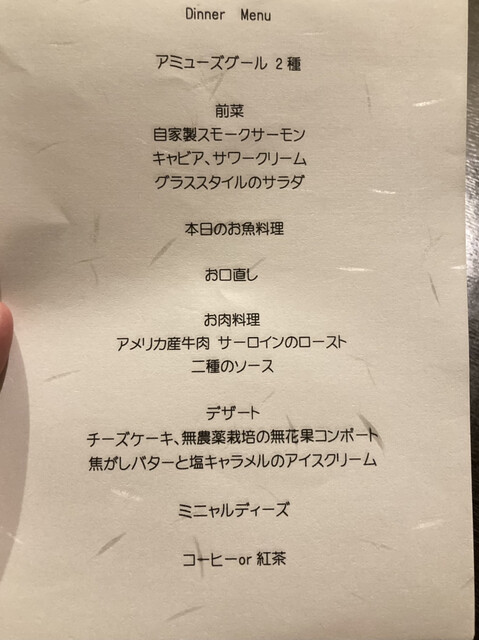 Dinner Menu
アミューズグール 2種
前菜
自家製スモークサーモン
キャビア、サワークリーム
グラススタイルのサラダ
本日のお魚料理
お口直し
お肉料理
アメリカ産牛肉 サーロインのロースト
二種のソース
デザート
チーズケーキ、無農薬栽培の無花果コンポート
焦がしバターと塩キャラメルのアイスクリーム
ミニャルディーズ
コーヒーor紅茶